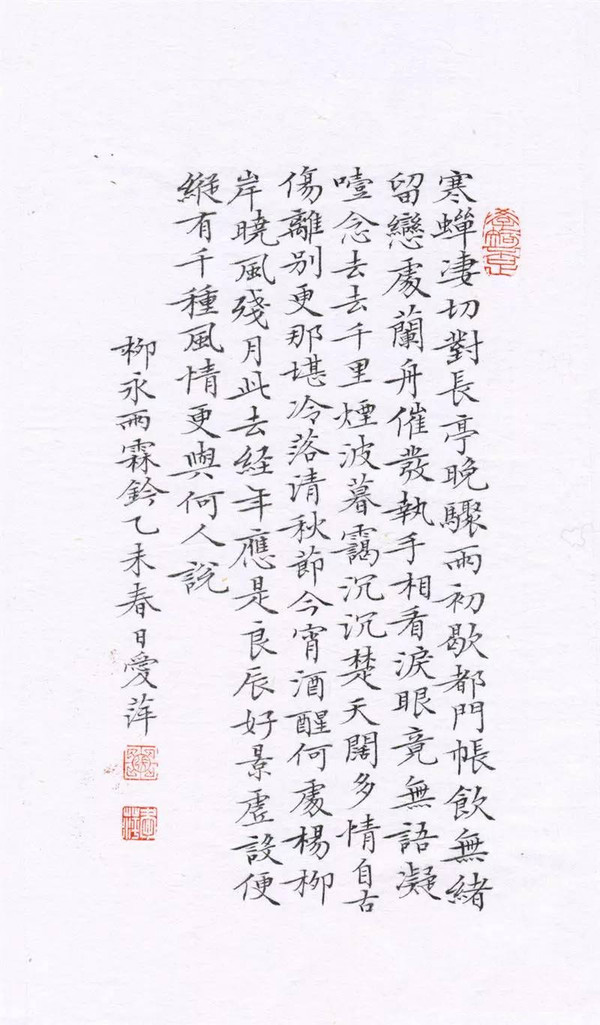 寒蟬淒切對長亭晚驟雨初歇都門帳飲無緒
留戀處蘭舟催發執手相看淚眼竟無語凝
噎念去去千里煙波暮靄沉沉楚天闊多情自古
傷離別更那堪冷落清秋節今宵酒醒何處楊柳
岸曉風殘月此去経年應是良辰好景虛設便
縱有千種風情更與何人說
柳永雨霖鈴乙未春日愛萍